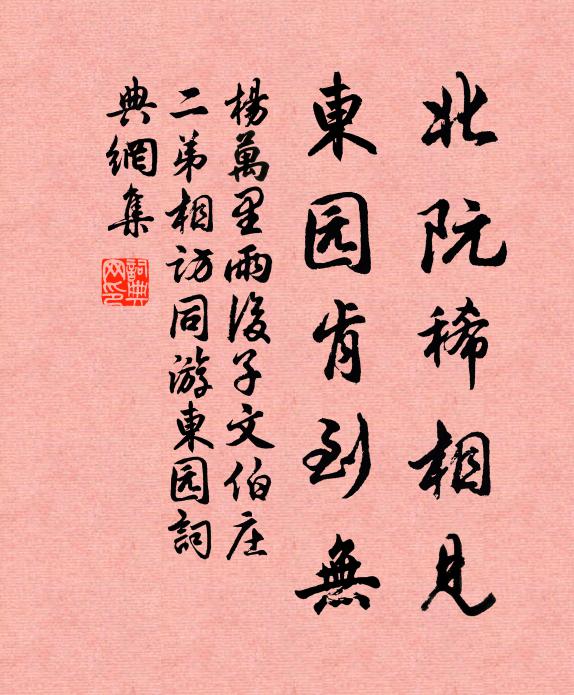 北阮稀相見
東园肯到無
楊萬里雨後子文伯庄
二弟相访同游東园詞
典網集
詞典
网印